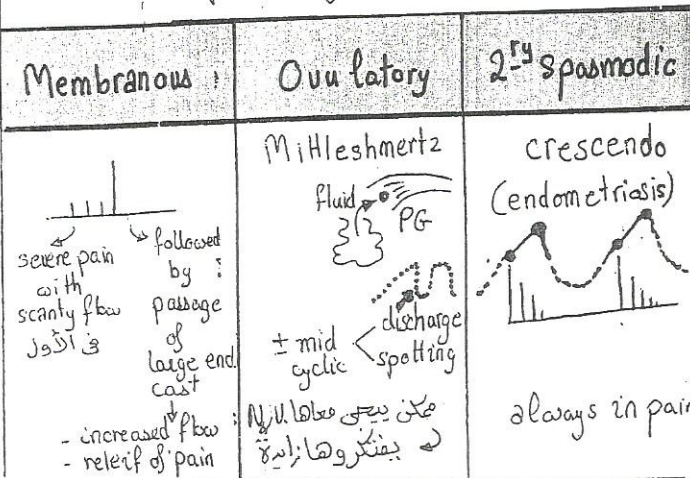 Membranous :
Ovulatory
2ry spasmodic
severe pain
with
scanty flow
فى الأول
followed
by :
passage
of
large end.
cast
- increased flow :
- releif of pain
Mittleshmertz
fluid
PG
± mid
cyclic
discharge
spotting
ممكن ييجى معاها N,V
يفتكروها زايدة
crescendo
(endometriosis)
always in pain